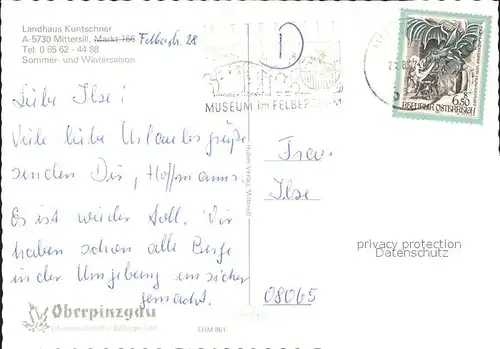 Landhaus Kuntschner
A-5730 Mittersill, Markt 166 Felberstr. 28
Tel. 0 65 62 - 44 98
Sommer- und Wintersaison
MUSEUM im FELBERTURM
6,50
REPUBLIK ÖSTERREICH
Liebe Ilse!
Viele liebe Urlaubsgrüße
senden Dir, Hoffmanns.
Es ist wieder toll. Wir
haben schon alle Berge
in der Umgebung unsicher
gemacht.
Frau
Ilse
08065
Huber-Verlag, Mittersill
privacy protection
Datenschutz
Oberpinzgau
EHM 861